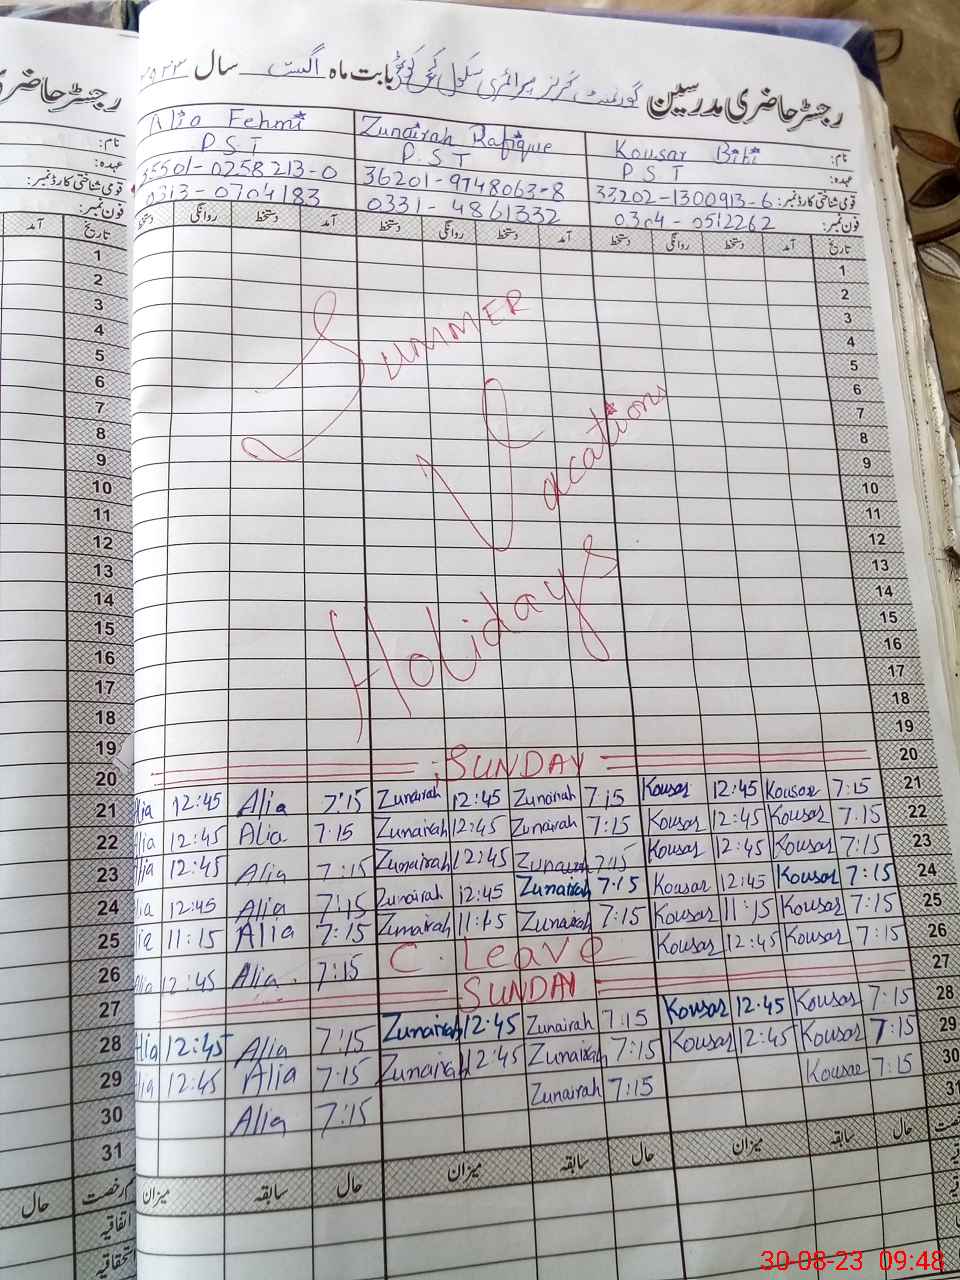 رجسٹر حاضری مدرسین گورنمنٹ گرلز پرائمری سکول بابت ماہ اگست سال ۲۰۲۳
رجسٹر حاضری
نام: Kousar Bibi Zunairah Rafique Alia Fehmi
عہدہ: P S T P.S T P S T
قومی شناختی کارڈ نمبر: 33202-1300913-6 36201-9748063-8 35501-0258213-0
فون نمبر: 0304-0512262 0331-4861332 0313-0704183
نام:
عہدہ:
قومی شناختی کارڈ نمبر:
فون نمبر:
تاریخ آمد دستخط روانگی دستخط آمد دستخط روانگی دستخط آمد دستخط روانگی دستخط
تاریخ آمد
1 1
2 2
3 3
4 4
5 5
6 6
7 7
8 8
9 9
10 10
11 11
12 12
13 13
14 14
15 15
16 16
17 17
18 18
19 19
Summer
Vacations
Holidays
20 SUNDAY 20
21 Alia 12:45 Alia 7:15 Zunairah 12:45 Zunairah 7:15 Kousar 12:45 Kousar 7:15 21
22 Alia 12:45 Alia 7:15 Zunairah 12:45 Zunairah 7:15 Kousar 12:45 Kousar 7:15 22
23 Alia 12:45 Alia 7:15 Zunairah 12:45 Zunairah 7:15 Kousar 12:45 Kousar 7:15 23
24 Alia 12:45 Alia 7:15 Zunairah 12:45 Zunairah 7:15 Kousar 12:45 Kousar 7:15 24
25 Alia 11:15 Alia 7:15 Zunairah 11:15 Zunairah 7:15 Kousar 11:15 Kousar 7:15 25
26 Alia 12:45 Alia 7:15 C. Leave Kousar 12:45 Kousar 7:15 26
27 SUNDAY 27
28 Alia 12:45 Alia 7:15 Zunairah 12:45 Zunairah 7:15 Kousar 12:45 Kousar 7:15 28
29 Alia 12:45 Alia 7:15 Zunairah 12:45 Zunairah 7:15 Kousar 12:45 Kousar 7:15 29
30 Alia 7:15 Zunairah 7:15 Kousar 7:15 30
31 31
حال سابقہ میزان حال سابقہ میزان حال سابقہ میزان
رخصت حال
اتفاقیہ
استحقاقیہ
30-08-23 09:48